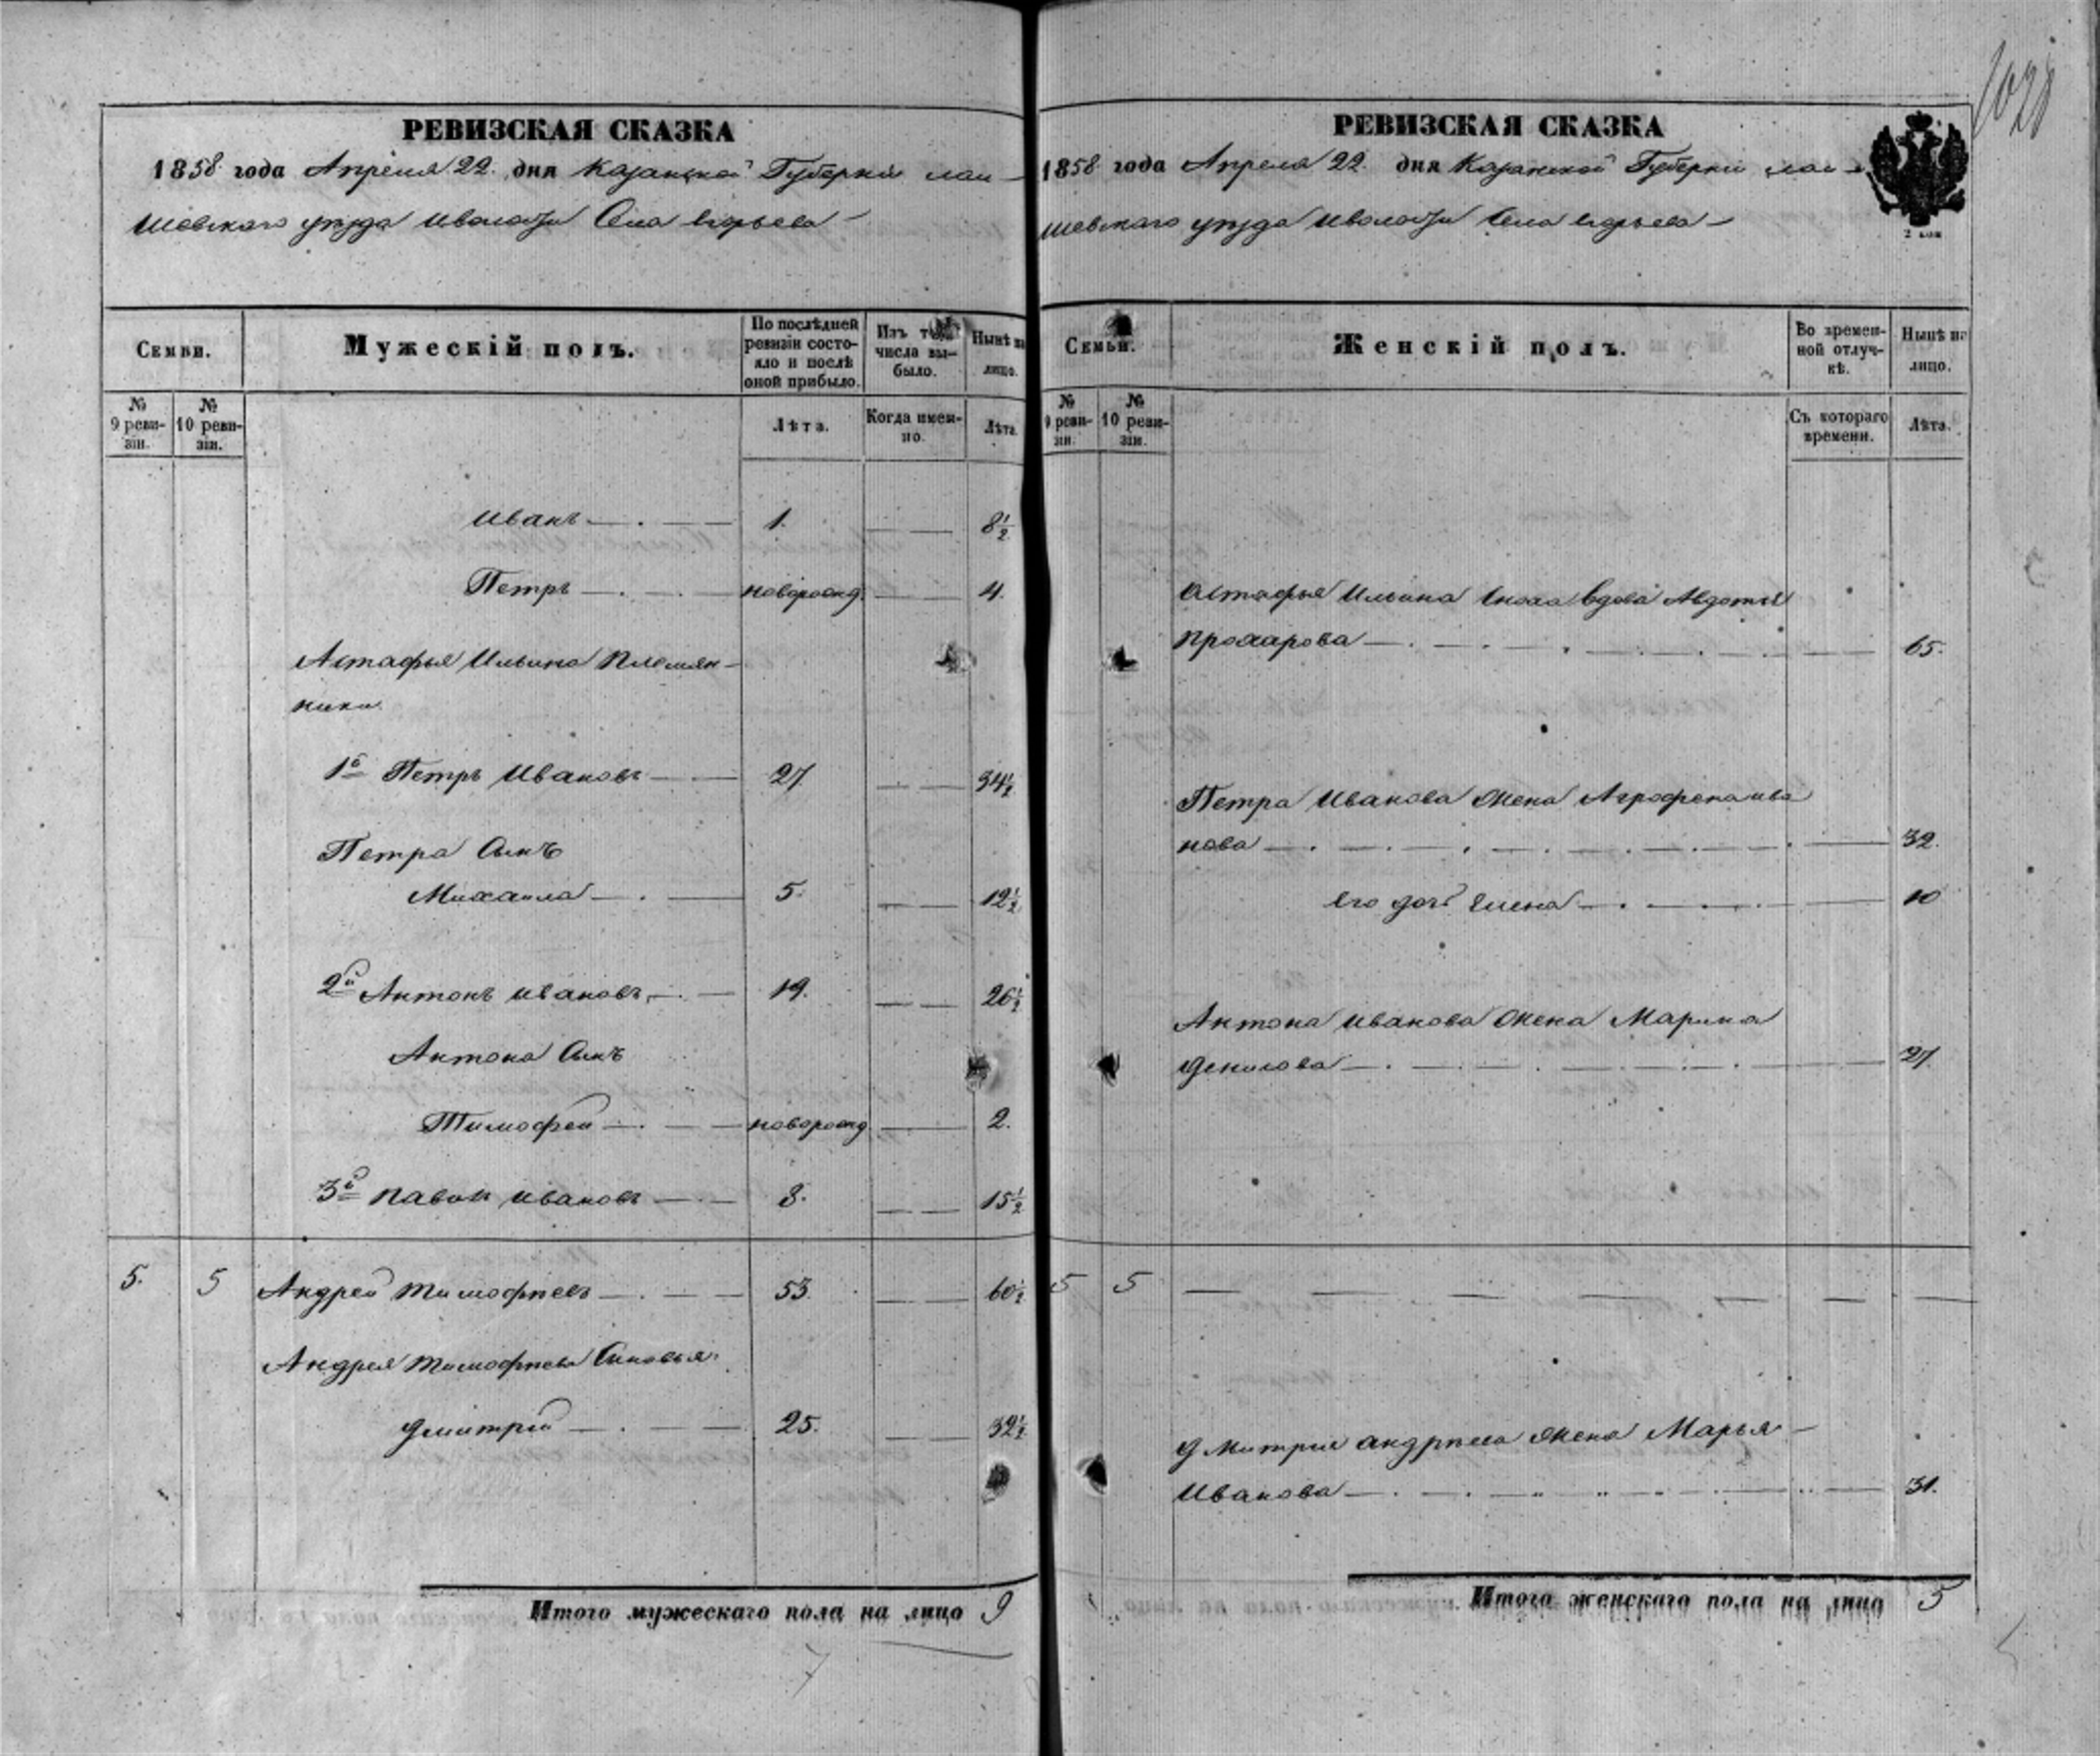 1028
РЕВИЗСКАЯ СКАЗКА
1858 года Апреля 22 дня Казанской Губерніи лаи-
шевскаго уезда и волости Села Егорьева
Семьи.
Мужескій полъ.
По послѣдней ревизіи состояло и послѣ оной прибыло.
Изъ того числа выбыло.
Нынѣ на лицо.
№ 9 ревизіи.
№ 10 ревизіи.
Лѣта.
Когда именно.
Лѣта.
Иванъ 1. 8½
Петръ новорожд. 4.
Астафья Ильина Племян-
ники
1й Петръ Ивановъ 27 34½
Петра Сынъ
Михаила 5. 12½
2й Антонъ Ивановъ 19. 26½
Антона Сынъ
Тимофей новорожд 2.
3й Павелъ Ивановъ 8. 15½
5. 5 Андрей Тимофѣевъ 53. 60½
Андрея Тимофѣева Сыновья
Дмитрій 25. 32½
Итого мужескаго пола на лицо 9
7
РЕВИЗСКАЯ СКАЗКА
1858 года Апреля 22 дня Казанской Губерніи лаи-
шевскаго уезда и волости Села Егорьева
2 коп
Семьи.
Женскій полъ.
Во времен-ной отлуч-кѣ.
Нынѣ на лицо.
№ 9 ревизіи.
№ 10 ревизіи.
Съ котораго времени.
Лѣта.
Астафья Ильина Сноха вдова Авдотья
Прохарова 65.
Петра Иванова Жена Агрофена ива
нова 32.
Его дочь Елена 10
Антона Иванова Жена Марина
Денилова 27.
5 5
Дмитрия андрѣева Жена Марья
Иванова 31.
Итого женскаго пола на лицо 5